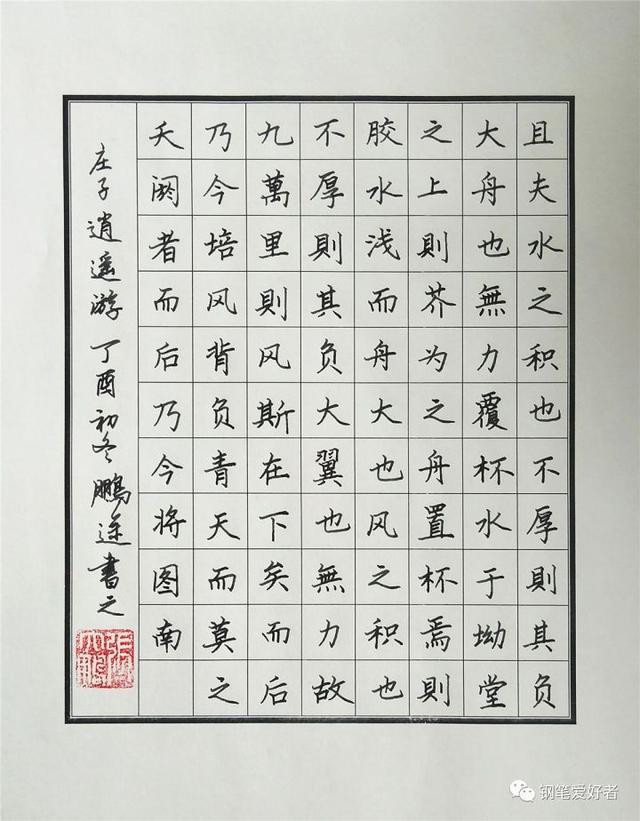 且夫水之积也不厚則其负
大舟也無力覆杯水于坳堂
之上則芥为之舟置杯焉則
胶水浅而舟大也风之积也
不厚則其负大翼也無力故
九萬里則风斯在下矣而后
乃今培风背负青天而莫之
夭阏者而后乃今将图南
庄子逍遥游 丁酉初冬 鹏途書之
钢笔爱好者